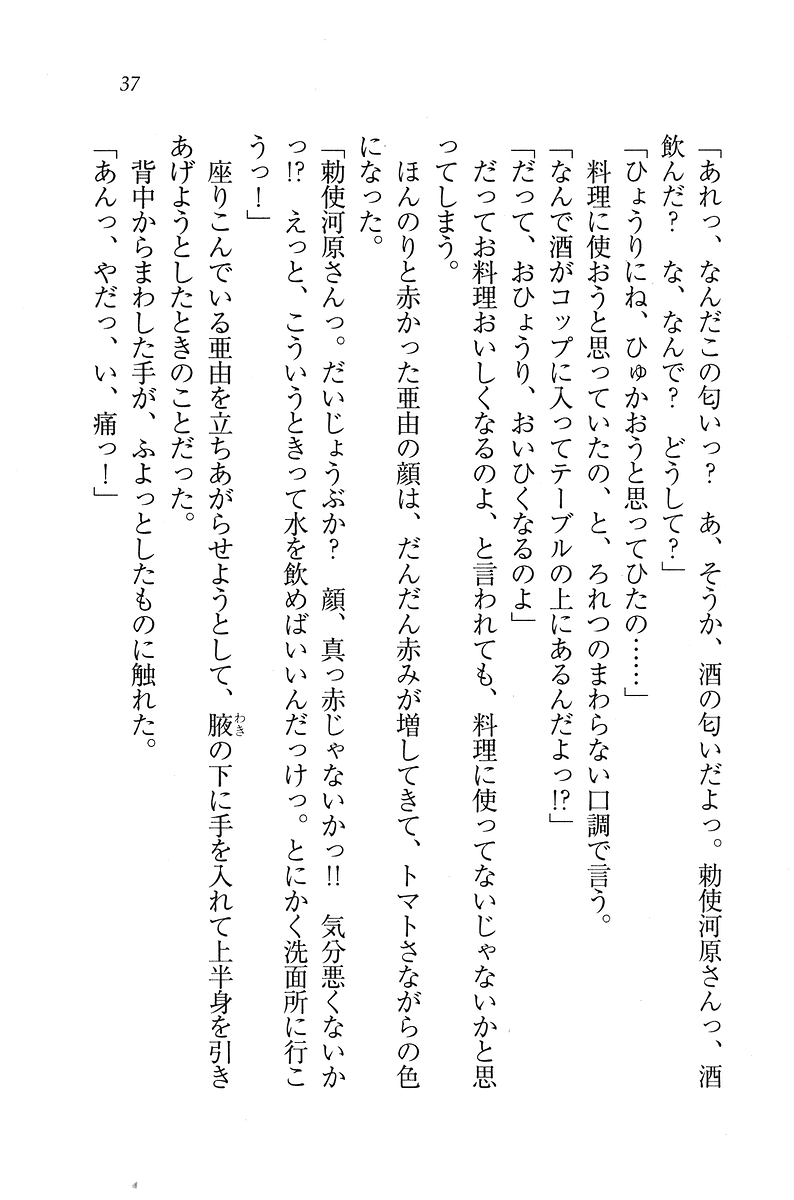 37
「あれっ、なんだこの匂いっ？　あ、そうか、酒の匂いだよっ。勅使河原さんっ、酒
飲んだ？　な、なんで？　どうして？」
「ひょうりにね、ひゅかおうと思ってひたの……」
　料理に使おうと思っていたの、と、ろれつのまわらない口調で言う。
「なんで酒がコップに入ってテーブルの上にあるんだよっ!?」
「だって、おひょうり、おいひくなるのよ」
　だってお料理おいしくなるのよ、と言われても、料理に使ってないじゃないかと思
ってしまう。
　ほんのりと赤かった亜由の顔は、だんだん赤みが増してきて、トマトさながらの色
になった。
「勅使河原さんっ。だいじょうぶか？　顔、真っ赤じゃないかっ!!　気分悪くないか
っ!?　えっと、こういうときって水を飲めばいいんだっけっ。とにかく洗面所に行こ
うっ！」
　座りこんでいる亜由を立ちあがらせようとして、腋わきの下に手を入れて上半身を引き
あげようとしたときのことだった。
　背中からまわした手が、ふよっとしたものに触れた。
「あんっ、やだっ、い、痛っ！」